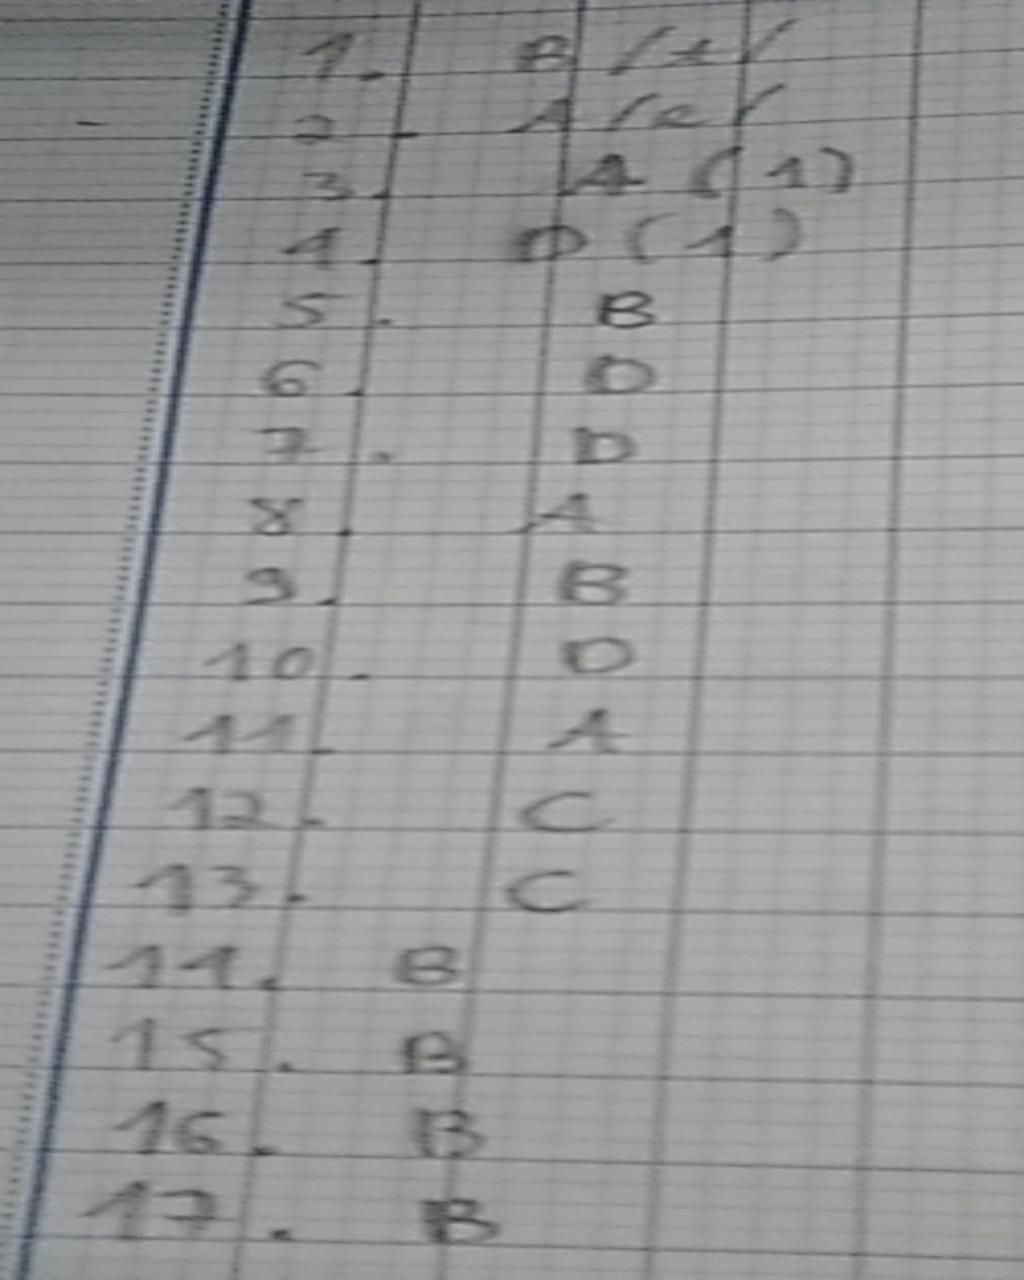 1. B
2. A
3. A (1)
4. D (1)
5. B
6. D
7. D
8. A
9. B
10. D
11. A
12. C
13. C
14. B
15. B
16. B
17. B